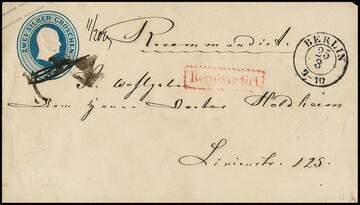 ZWEI SILBER-GROSCHEN
Recommandirt.
BERLIN
25
3
9-10
Recomandirt
Sr. Wohlgeb.
Dem Herrn Doctor Holdheim
Linienstr. 125.